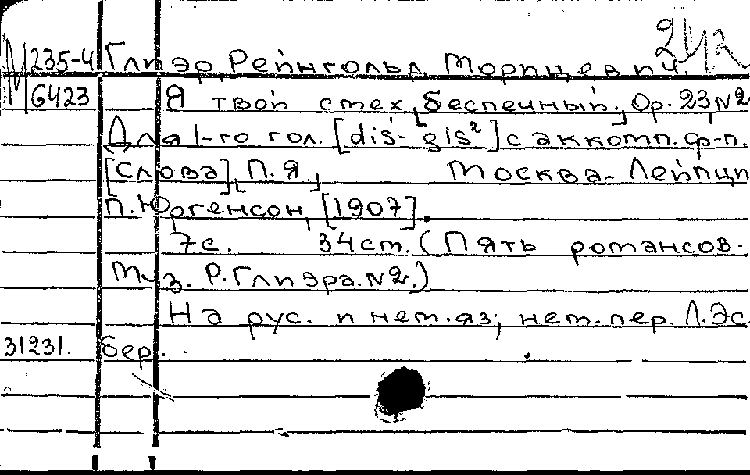 М 235-4 Глиэр, Рейнгольд Морицевич 242
G423 Я твой смех беспечный, Op. 23, №2
Для 1-го гол. [dis-gis²] с аккомп. ф-п.
[Слова], П. Я. Москва-Лейпциг
П. Юргенсон, [1907].
7с. 34см. (Пять романсов-
Муз. Р. Глиэра. №2.)
На рус. и нем. яз; нем. пер. Л. Эс.
31231. бер.